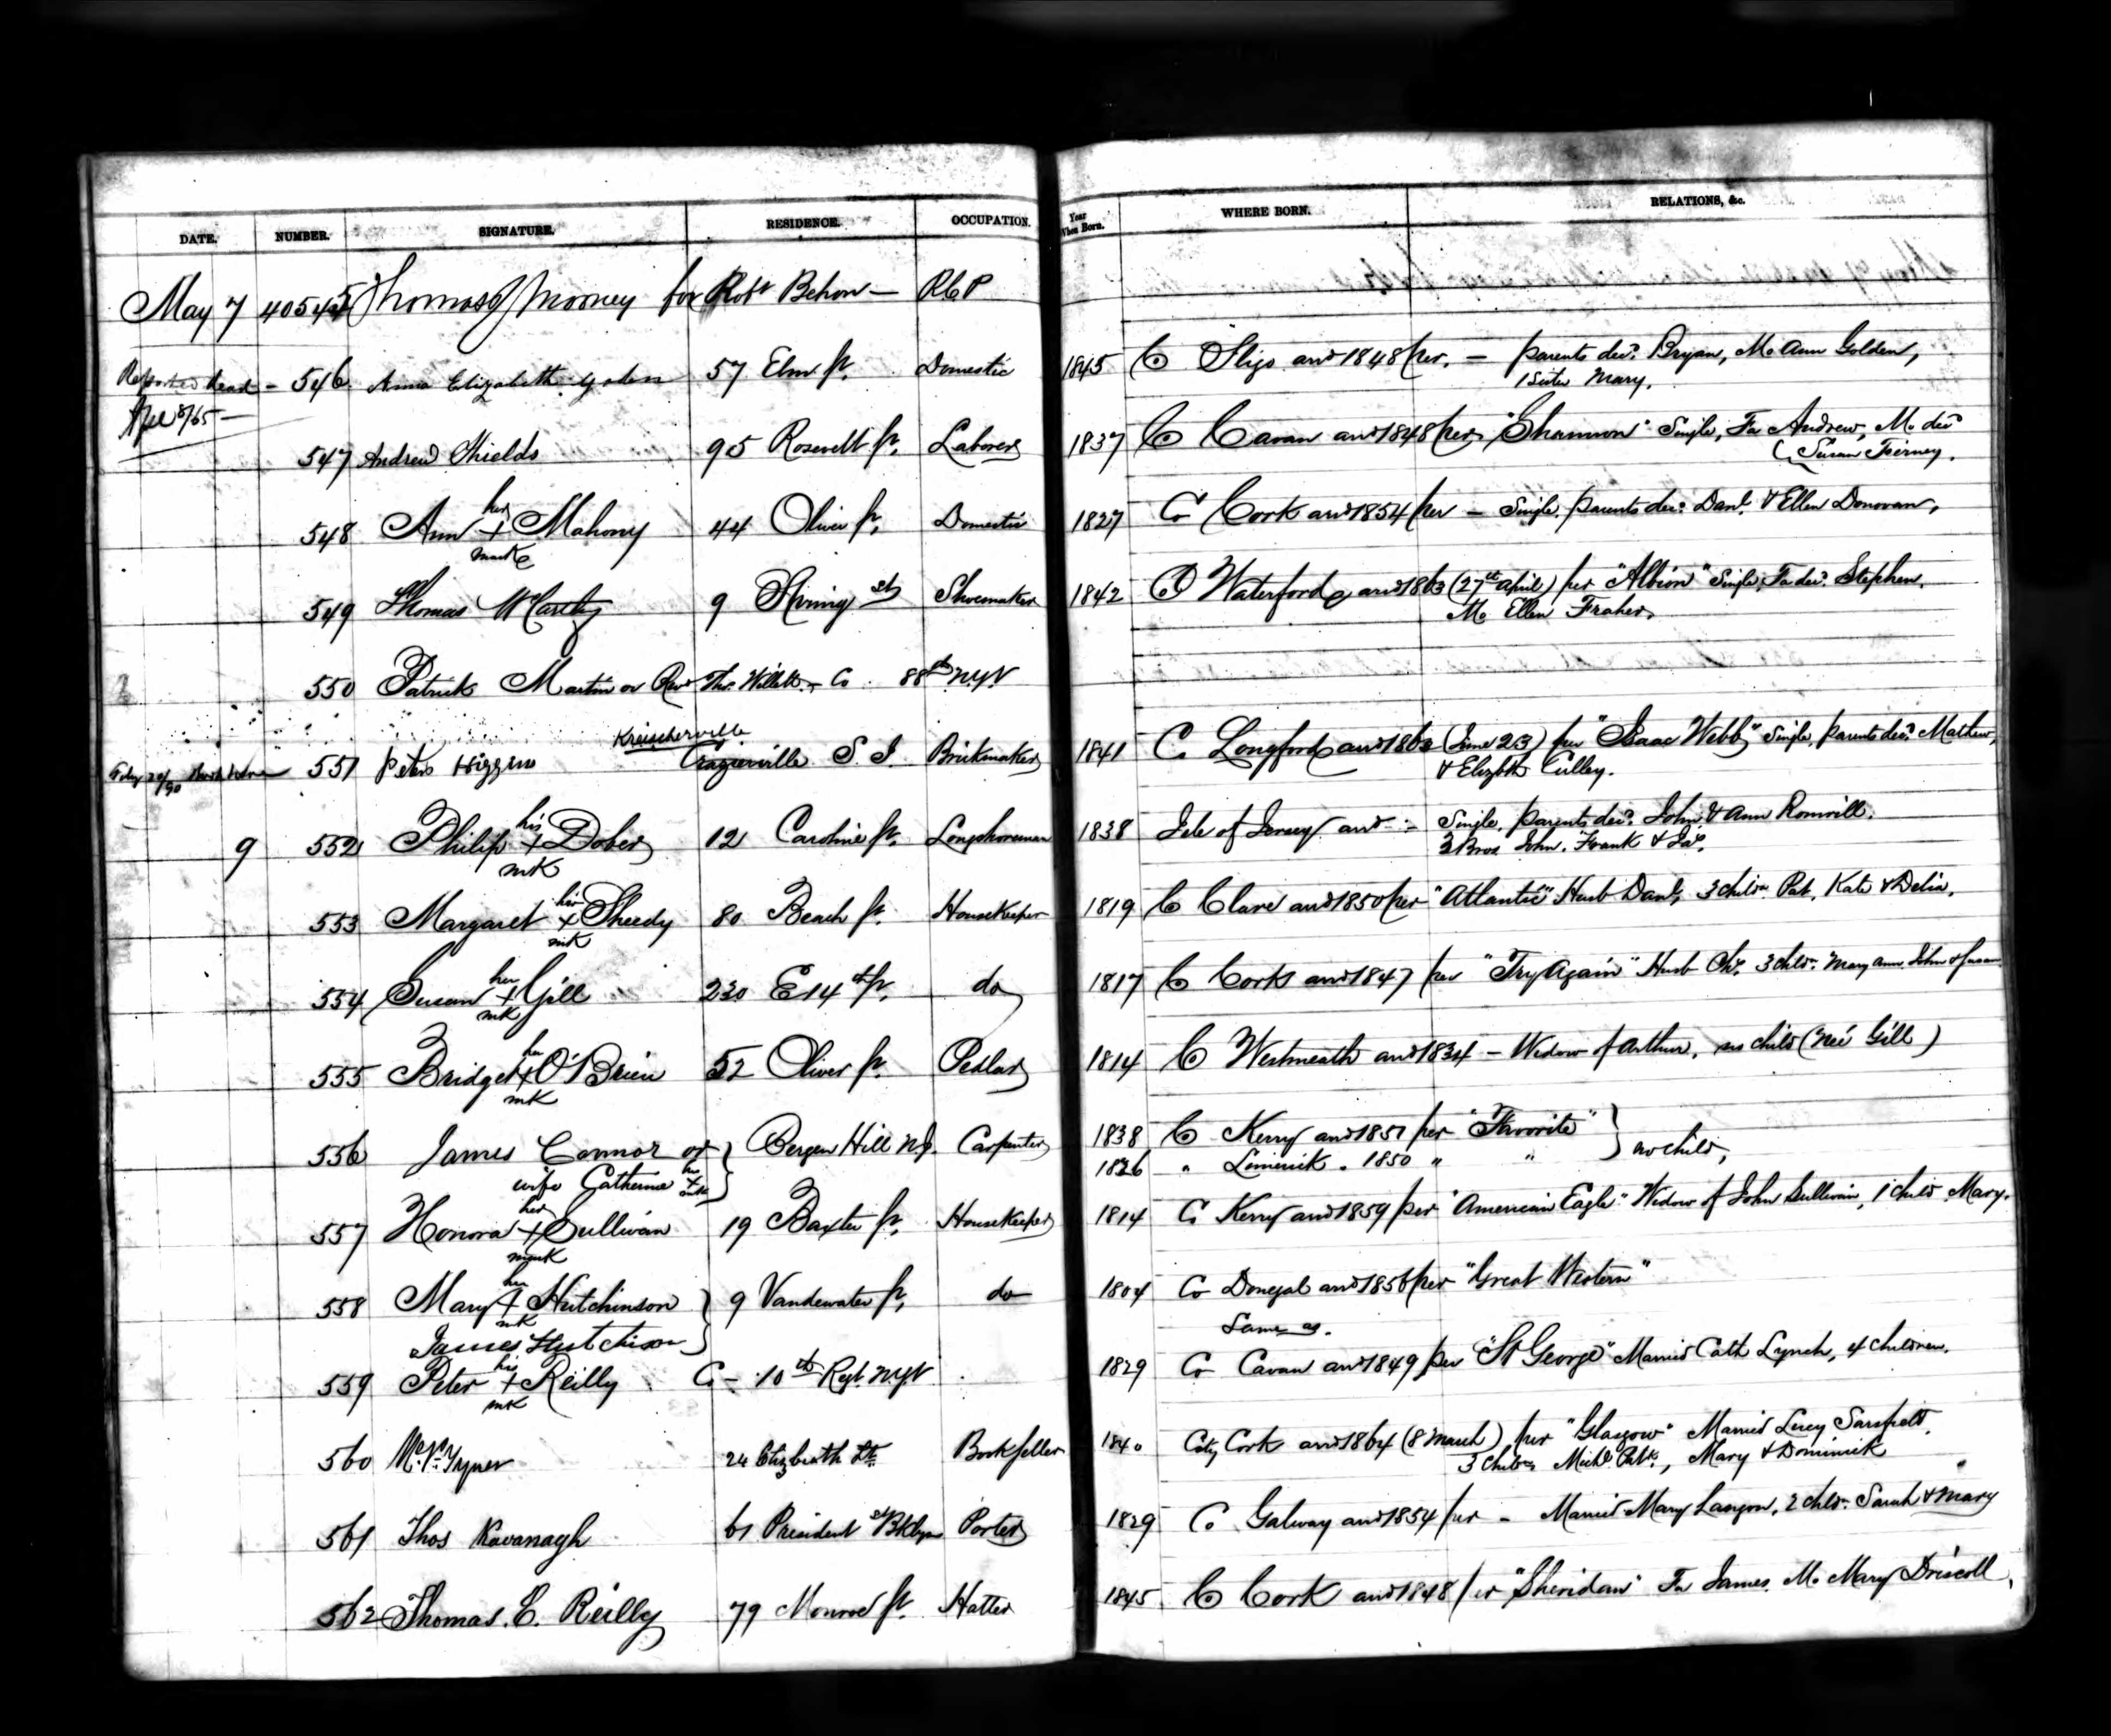 DATE. NUMBER. SIGNATURE. RESIDENCE. OCCUPATION. Year When Born. WHERE BORN. RELATIONS, &c.
May 7 40545 Thomas J Mooney for Robt Behow — RCP
Reported dead — 546 Anna Elizabeth Golden 57 Elm st. Domestic 1845 Co Sligo arrd 1848 per. — parents decd. Bryan, Mo Ann Golden,
1 Sister Mary.
Apl 8/65 —
547 Andrew Shields 95 Rosevelt st. Laborer 1837 Co Cavan arrd 1848 per "Shannon" Single, Fa Andrew, Mo decd
Susan Tierney.
548 Ann her + mark Mahony 44 Oliver st. Domestic 1827 Co Cork arrd 1854 per — Single. parents decd. Danl. & Ellen Donovan,
549 Thomas McCarthy 9 Spring st Shoemaker 1842 Co Waterford arrd 1863 (27th april) per "Albion" Single, Fa decd. Stephen,
Mo Ellen Fraher.
550 Patrick Martin or Revd Thos. Willett — Co 88th N.Y.V
Kreischerville
551 Peter Higgins S. I. Brickmaker 1841 Co Longford arrd 1863 (June 23) per "Isaac Webb" Single, parents decd. Mathew,
& Elizbth Culley.
9 552 Philip his + mk Dober 12 Caroline st. Longshoreman 1838 Isle of Jersey arrd — Single, parents decd. John & Ann Romrill.
3 Bros. John, Frank & Jas.
553 Margaret her + mk Sheedy 80 Beach st. Housekeeper 1819 Co Clare arrd 1850 per "Atlantic" Husb Danl, 3 childn Pat, Kate & Delia.
554 Susan her + mk Gill 230 E 14th st. do 1817 Co Cork arrd 1847 per "Try Again" Husb Chs. 3 chldn. Mary Ann, John & Susan
555 Bridget her + mk O'Brien 52 Oliver st. Pedlar 1814 Co Westmeath arrd 1834 — Widow of Arthur, no child (neé Gill)
556 James Connor or Bergen Hill N.J. Carpenter 1838 Co Kerry arrd 1851 per "Favorite" no child,
wife Catherine her + mk 1826 " Limerick " 1850 " "
557 Honora her + mark Sullivan 19 Baxter st, Housekeeper 1814 Co Kerry arrd 1859 per "American Eagle" Widow of John Sullivan, 1 child Mary.
558 Mary her + mk Hutchinson 9 Vandewater st, do 1804 Co Donegal arrd 1856 per "Great Western"
James Hutchison Same as.
559 Peter his + mk Reilly C — 10th Regt. N.Y.V 1829 Co Cavan arrd 1849 per "St George" Married Cath Lynch, 4 children.
560 Tyner 24 Elizbeath St. Bookseller 1840 City Cork arrd 1864 (8 March) per "Glasgow" Married Lucy Sarsfield.
3 chldn. Michl Patk., Mary & Dominick
561 Thos Kavanagh 61 President st Bklyn Porter 1829 Co Galway arrd 1854 per — Married Mary Langon, 2 chldn. Sarah & Mary
562 Thomas. C. Reilly 79 Monroe st. Hatter 1845 Co Cork arrd 1848 per "Sheridan" Fa James. Mo Mary Driscoll,